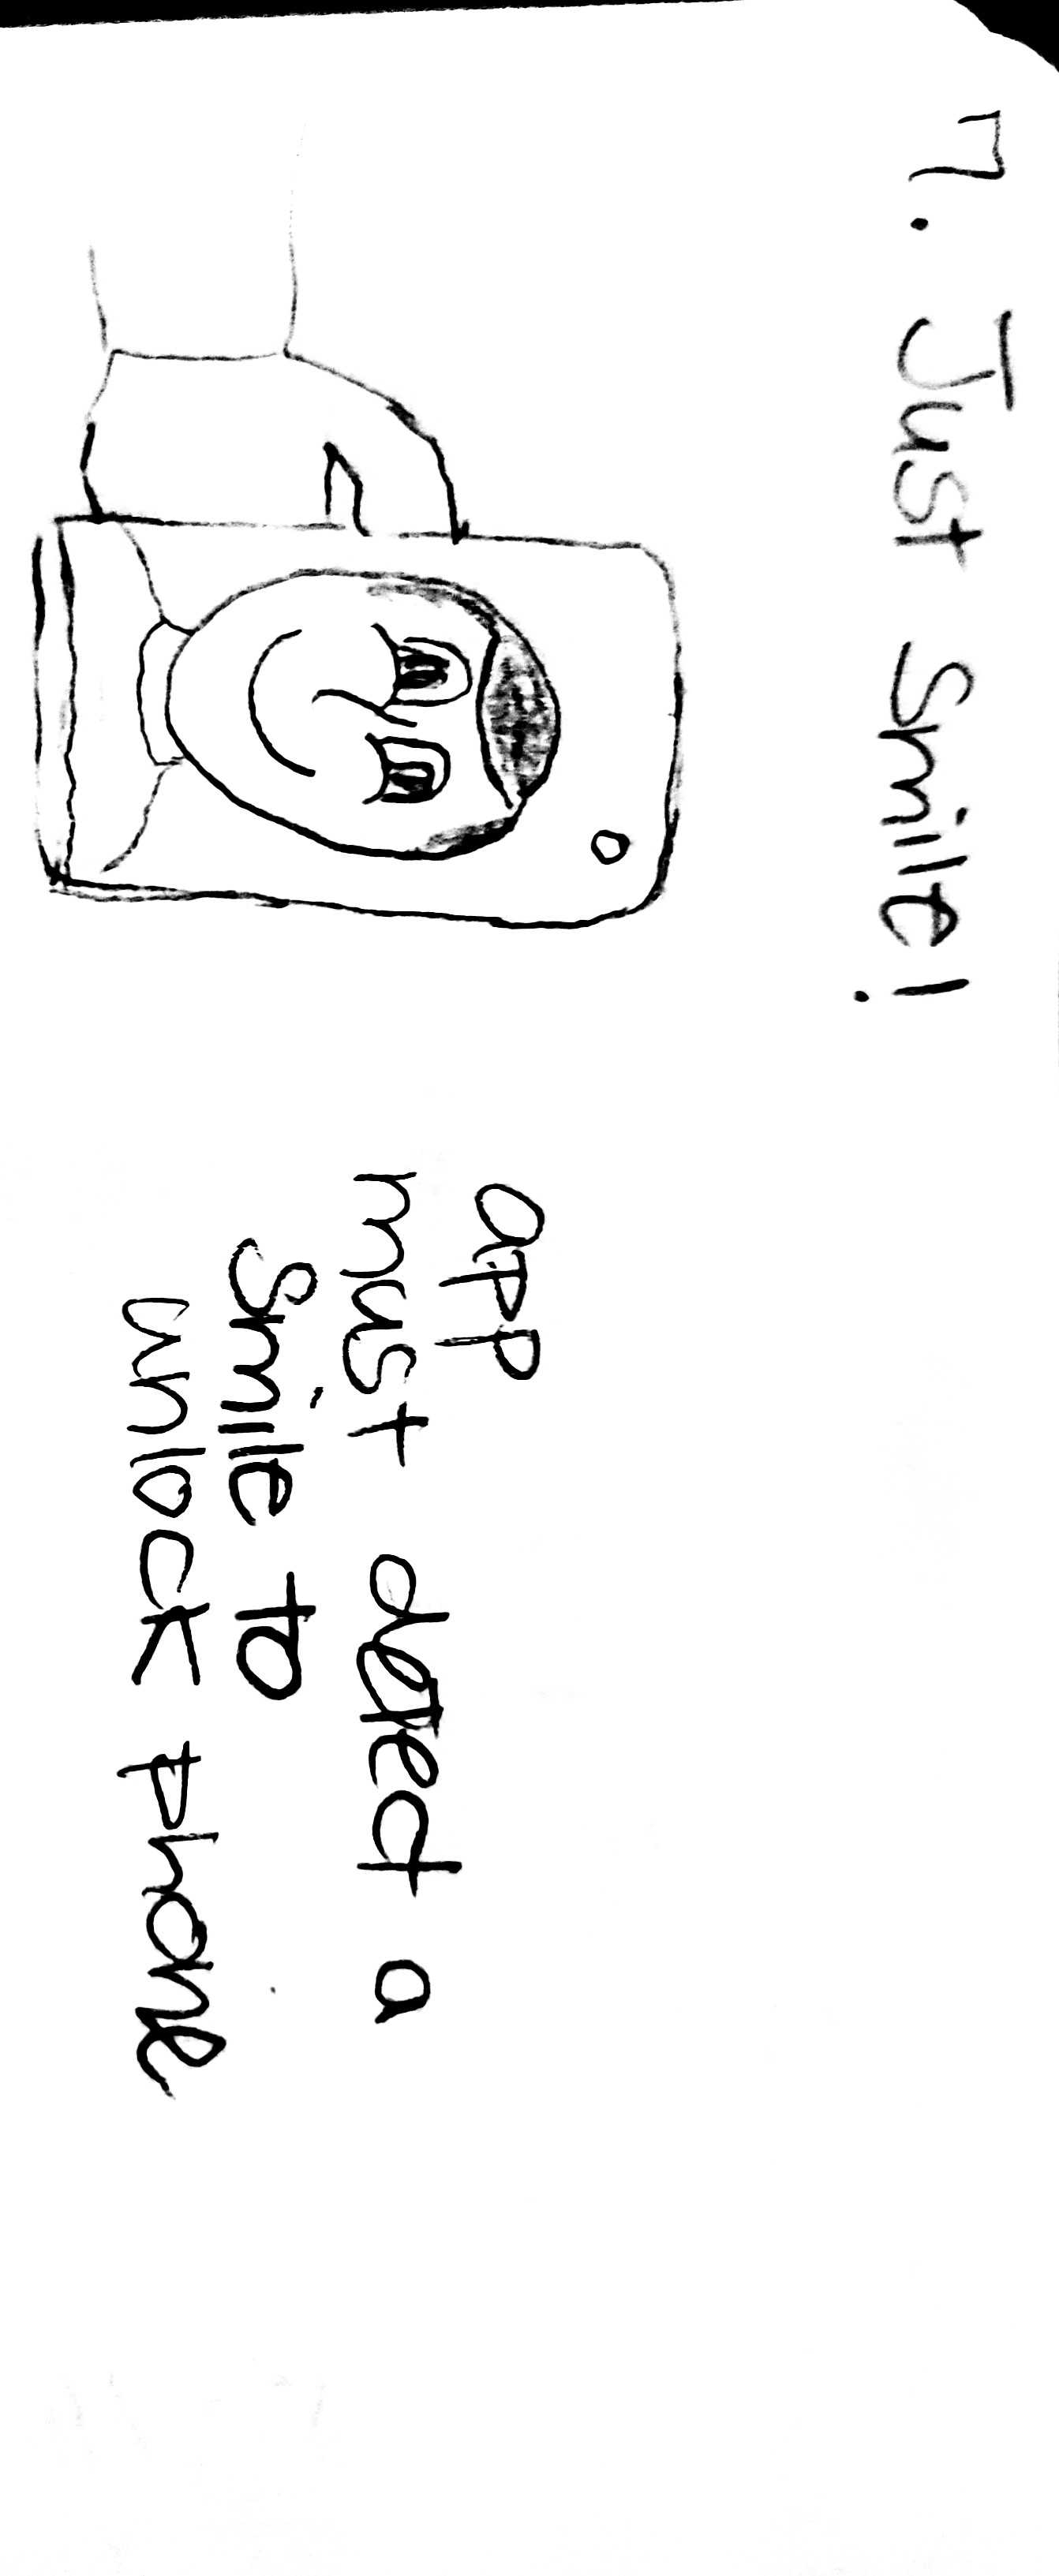 7. Just Smile!
app
must detect a
Smile to
unlock phone